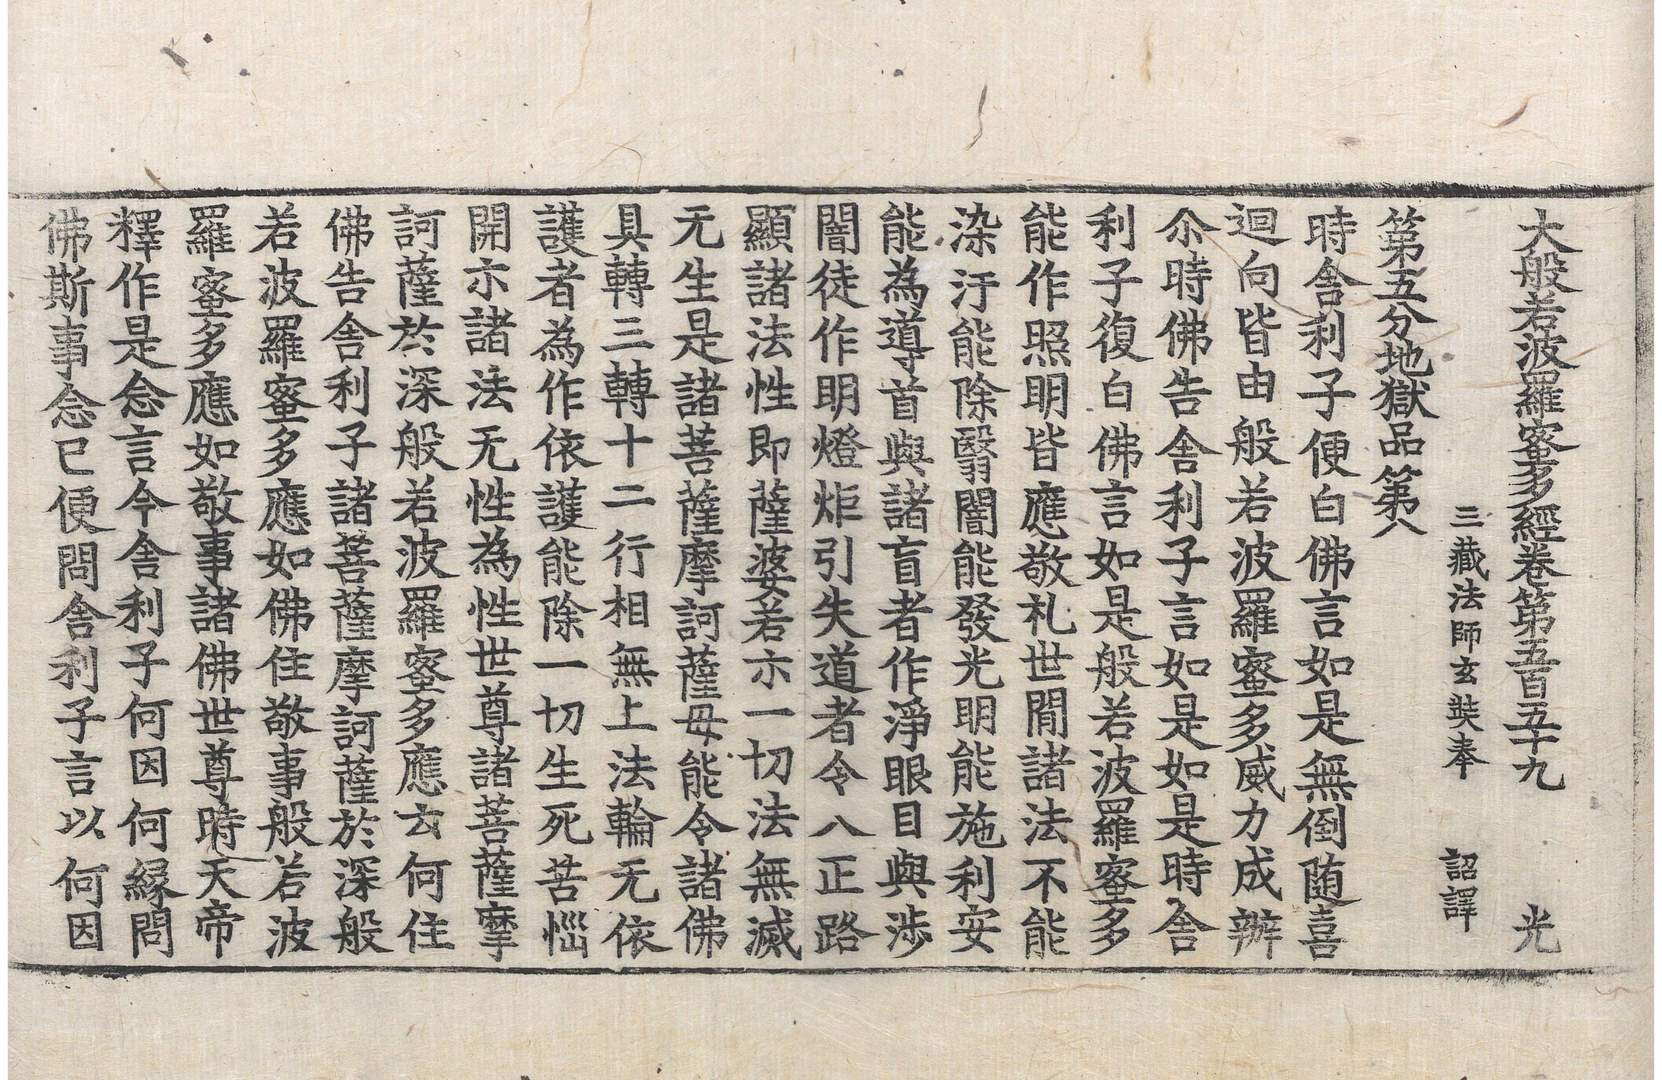 大般若波羅蜜多經卷第五百五十九　光
三藏法師玄奘奉　詔譯
第五分地獄品第八
時舍利子便白佛言如是無倒随喜
迴向皆由般若波羅蜜多威力成辦
尒時佛告舍利子言如是如是時舍
利子復白佛言如是般若波羅蜜多
能作照明皆應敬礼世間諸法不能
染汙能除翳闇能發光明能施利安
能為導首與諸盲者作淨眼目與涉
闇徒作明燈炬引失道者令入正路
顯諸法性即薩婆若示一切法無滅
无生是諸菩薩摩訶薩母能令諸佛
具轉三轉十二行相無上法輪无依
護者為作依護能除一切生死苦惱
開示諸法无性為性世尊諸菩薩摩
訶薩於深般若波羅蜜多應云何住
佛告舍利子諸菩薩摩訶薩於深般
若波羅蜜多應如佛住敬事般若波
羅蜜多應如敬事諸佛世尊時天帝
釋作是念言今舍利子何因何緣問
佛斯事念已便問舍利子言以何因